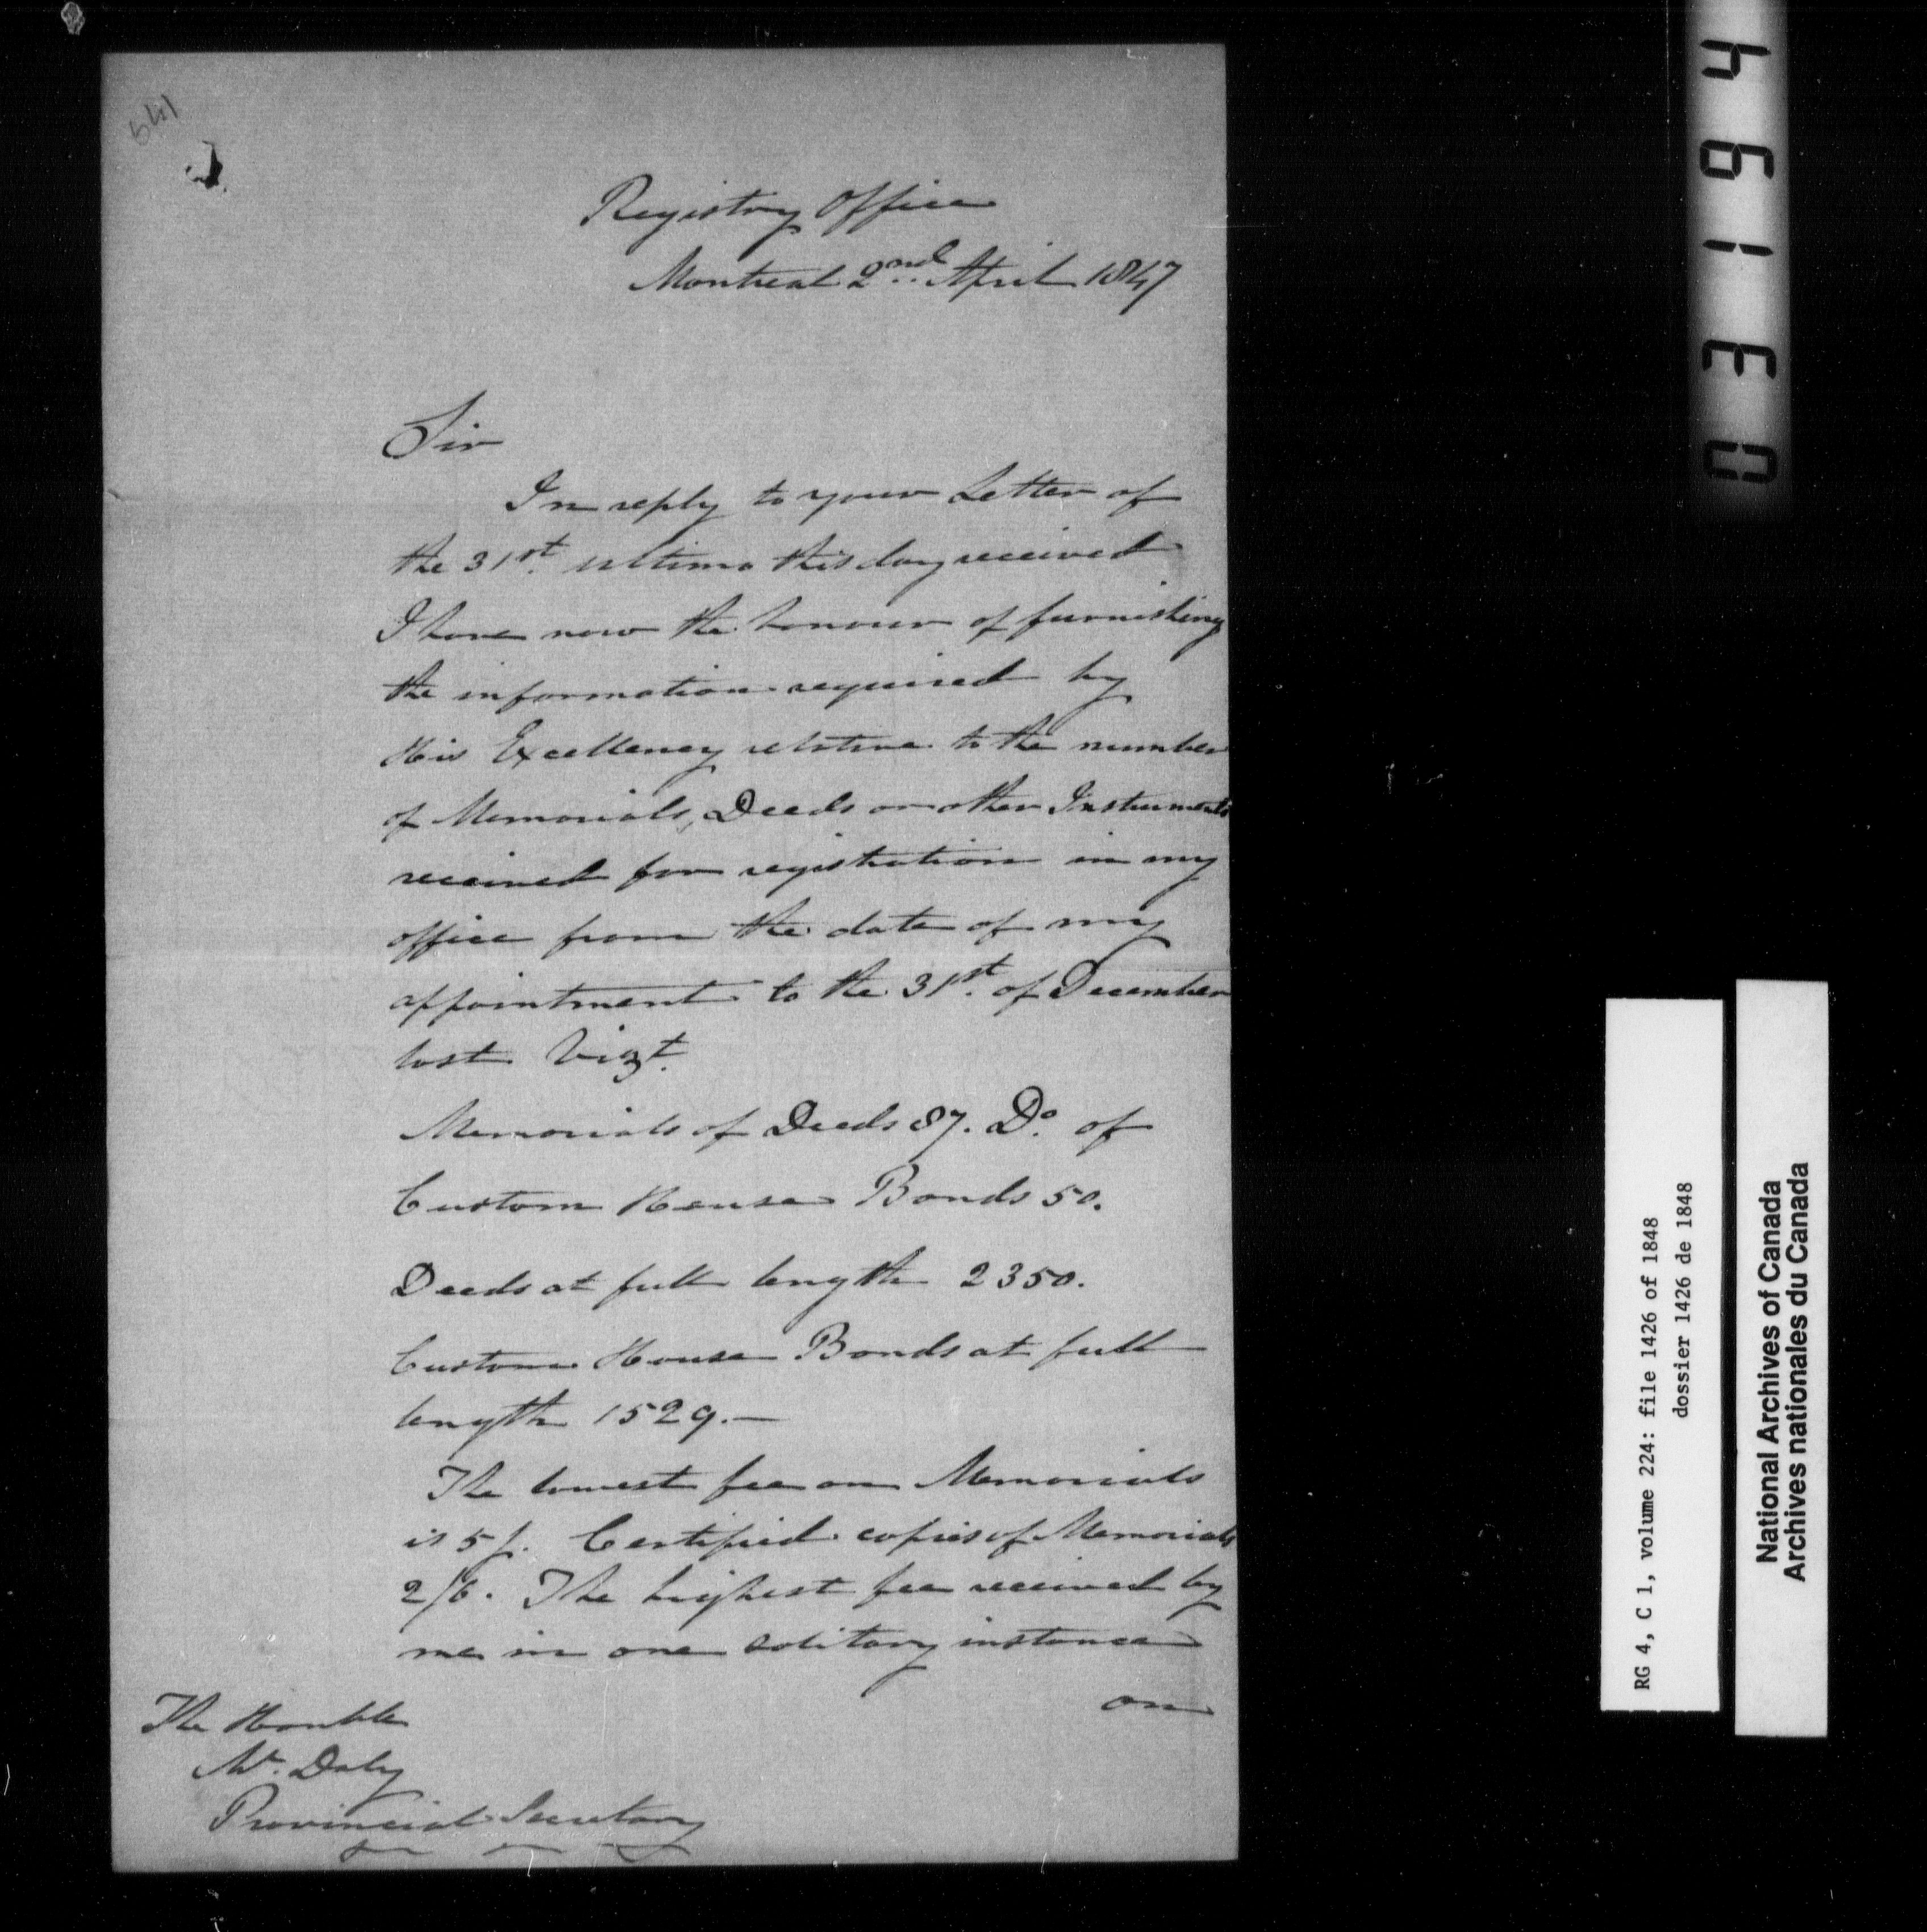 641
Registry Office
Montreal 2nd April 1847
Sir
In reply to your Letter of
the 31st ultimo this day received
I have now the honour of furnishing
the information required by
His Excellency relative to the number
of Memorials, Deeds or other Instruments
received for registration in my
office from the date of my
appointment to the 31st of December
last Vizt.
Memorials of Deeds 87. Do. of
Custom House Bonds 50.
Deeds at full length 2350.
Custom House Bonds at full
length 1529.—
The lowest fee on Memorials
is 5/. Certified copies of Memorials
2/6. The highest fee received by
me in one solitary instance
on
The Honble
Mr. Daly
Provincial Secretary
0 3 1 6 4
RG 4, C 1, volume 224: file 1426 of 1848
dossier 1426 de 1848
National Archives of Canada
Archives nationales du Canada